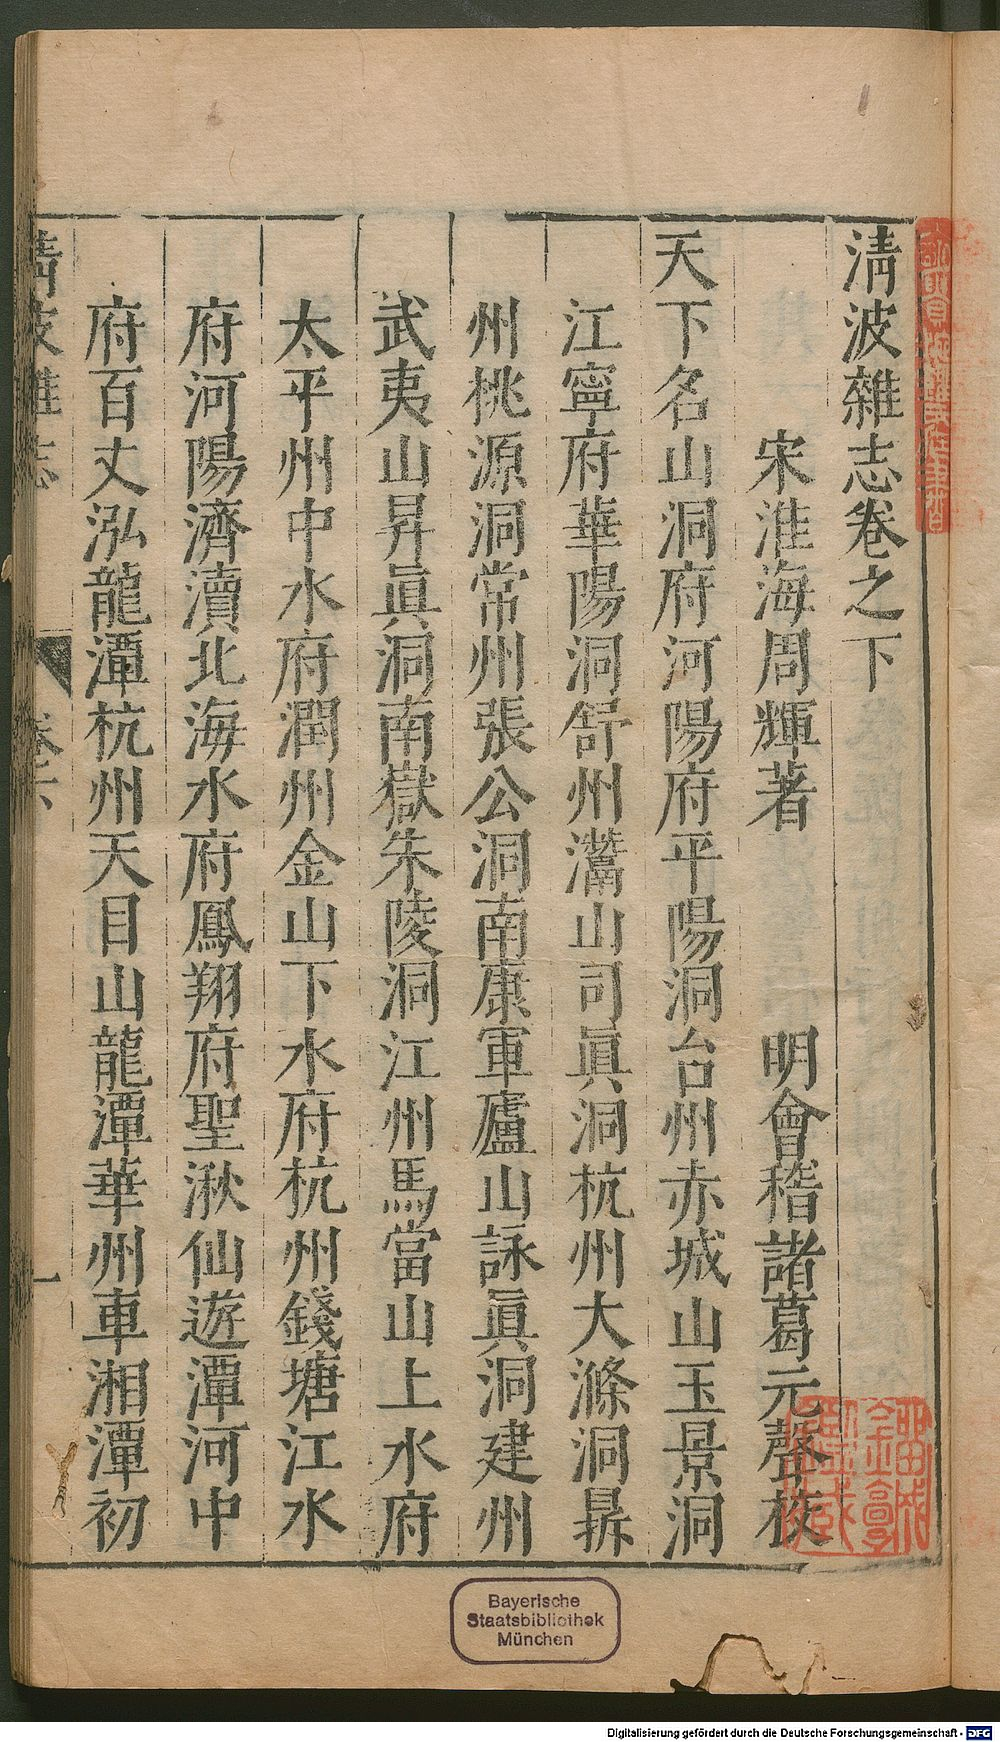 淸波雜志卷之下
宋淮海周輝著　明會稽諸葛元聲校
天下名山洞府河陽府平陽洞台州赤城山玉景洞
江寧府華陽洞舒州灊山司眞洞杭州大滌洞鼎
州桃源洞常州張公洞南康軍廬山詠眞洞建州
武夷山昇眞洞南嶽朱陵洞江州馬當山上水府
太平州中水府潤州金山下水府杭州錢塘江水
府河陽濟瀆北海水府鳳翔府聖湫仙遊潭河中
府百丈泓龍潭杭州天目山龍潭華州車湘潭初
淸波雜志
一
Bayerische
Staatsbibliothek
München
Digitalisierung gefördert durch die Deutsche Forschungsgemeinschaft - DFG